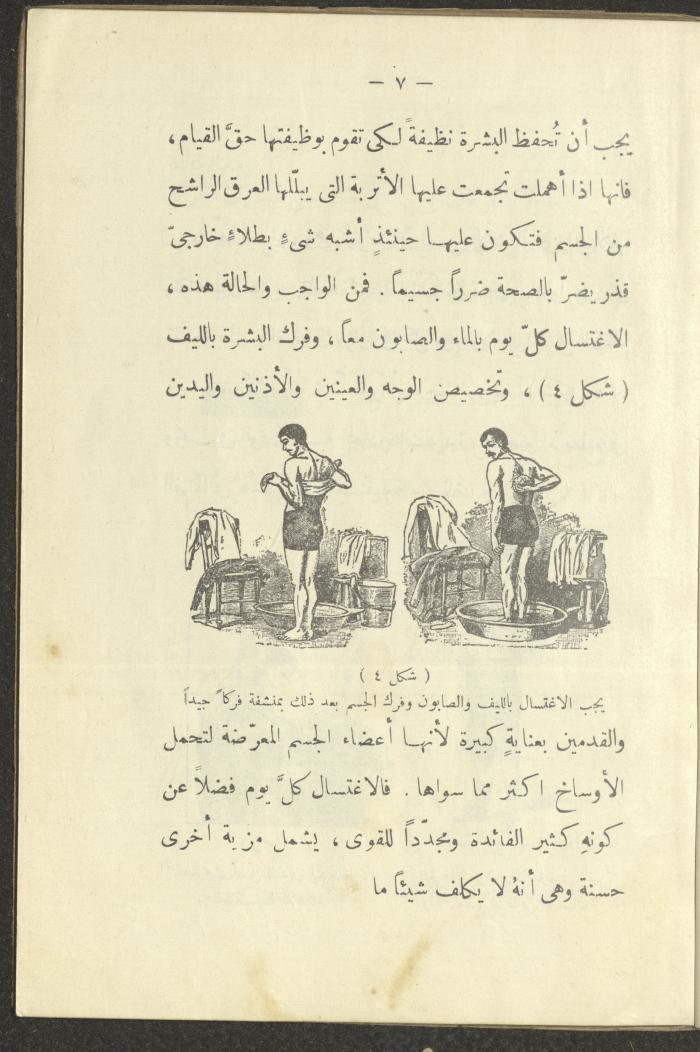 — ٧ —
يجب أن تُحفظ البشرة نظيفةً لكى تقوم بوظيفتها حقَّ القيام ،
فانها اذا أهملت تجمعت عليها الأتربة التى يبلّلها العرق الراشح
من الجسم فتكون عليها حينئذٍ أشبه شىءٍ بطلاءٍ خارجىّ
قذر يضرّ بالصحة ضرراً جسيماً . فمن الواجب والحالة هذه ،
الاغتسال كلّ يوم بالماء والصابون معاً ، وفرك البشرة بالليف
( شكل ٤ ) ، وتخصيص الوجه والعينين والأذنين واليدين
( شكل ٤ )
يجب الاغتسال بالليف والصابون وفرك الجسم بعد ذلك بمنشفة فركاً جيداً
والقدمين بعنايةٍ كبيرة لأنها أعضاء الجسم المعرّضة لتحمل
الأوساخ اكثر مما سواها . فالاغتسال كلَّ يوم فضلاً عن
كونهِ كثير الفائدة ومجدّداً للقوى ، يشمل مزية أخرى
حسنة وهى أنهُ لا يكلف شيئاً ما